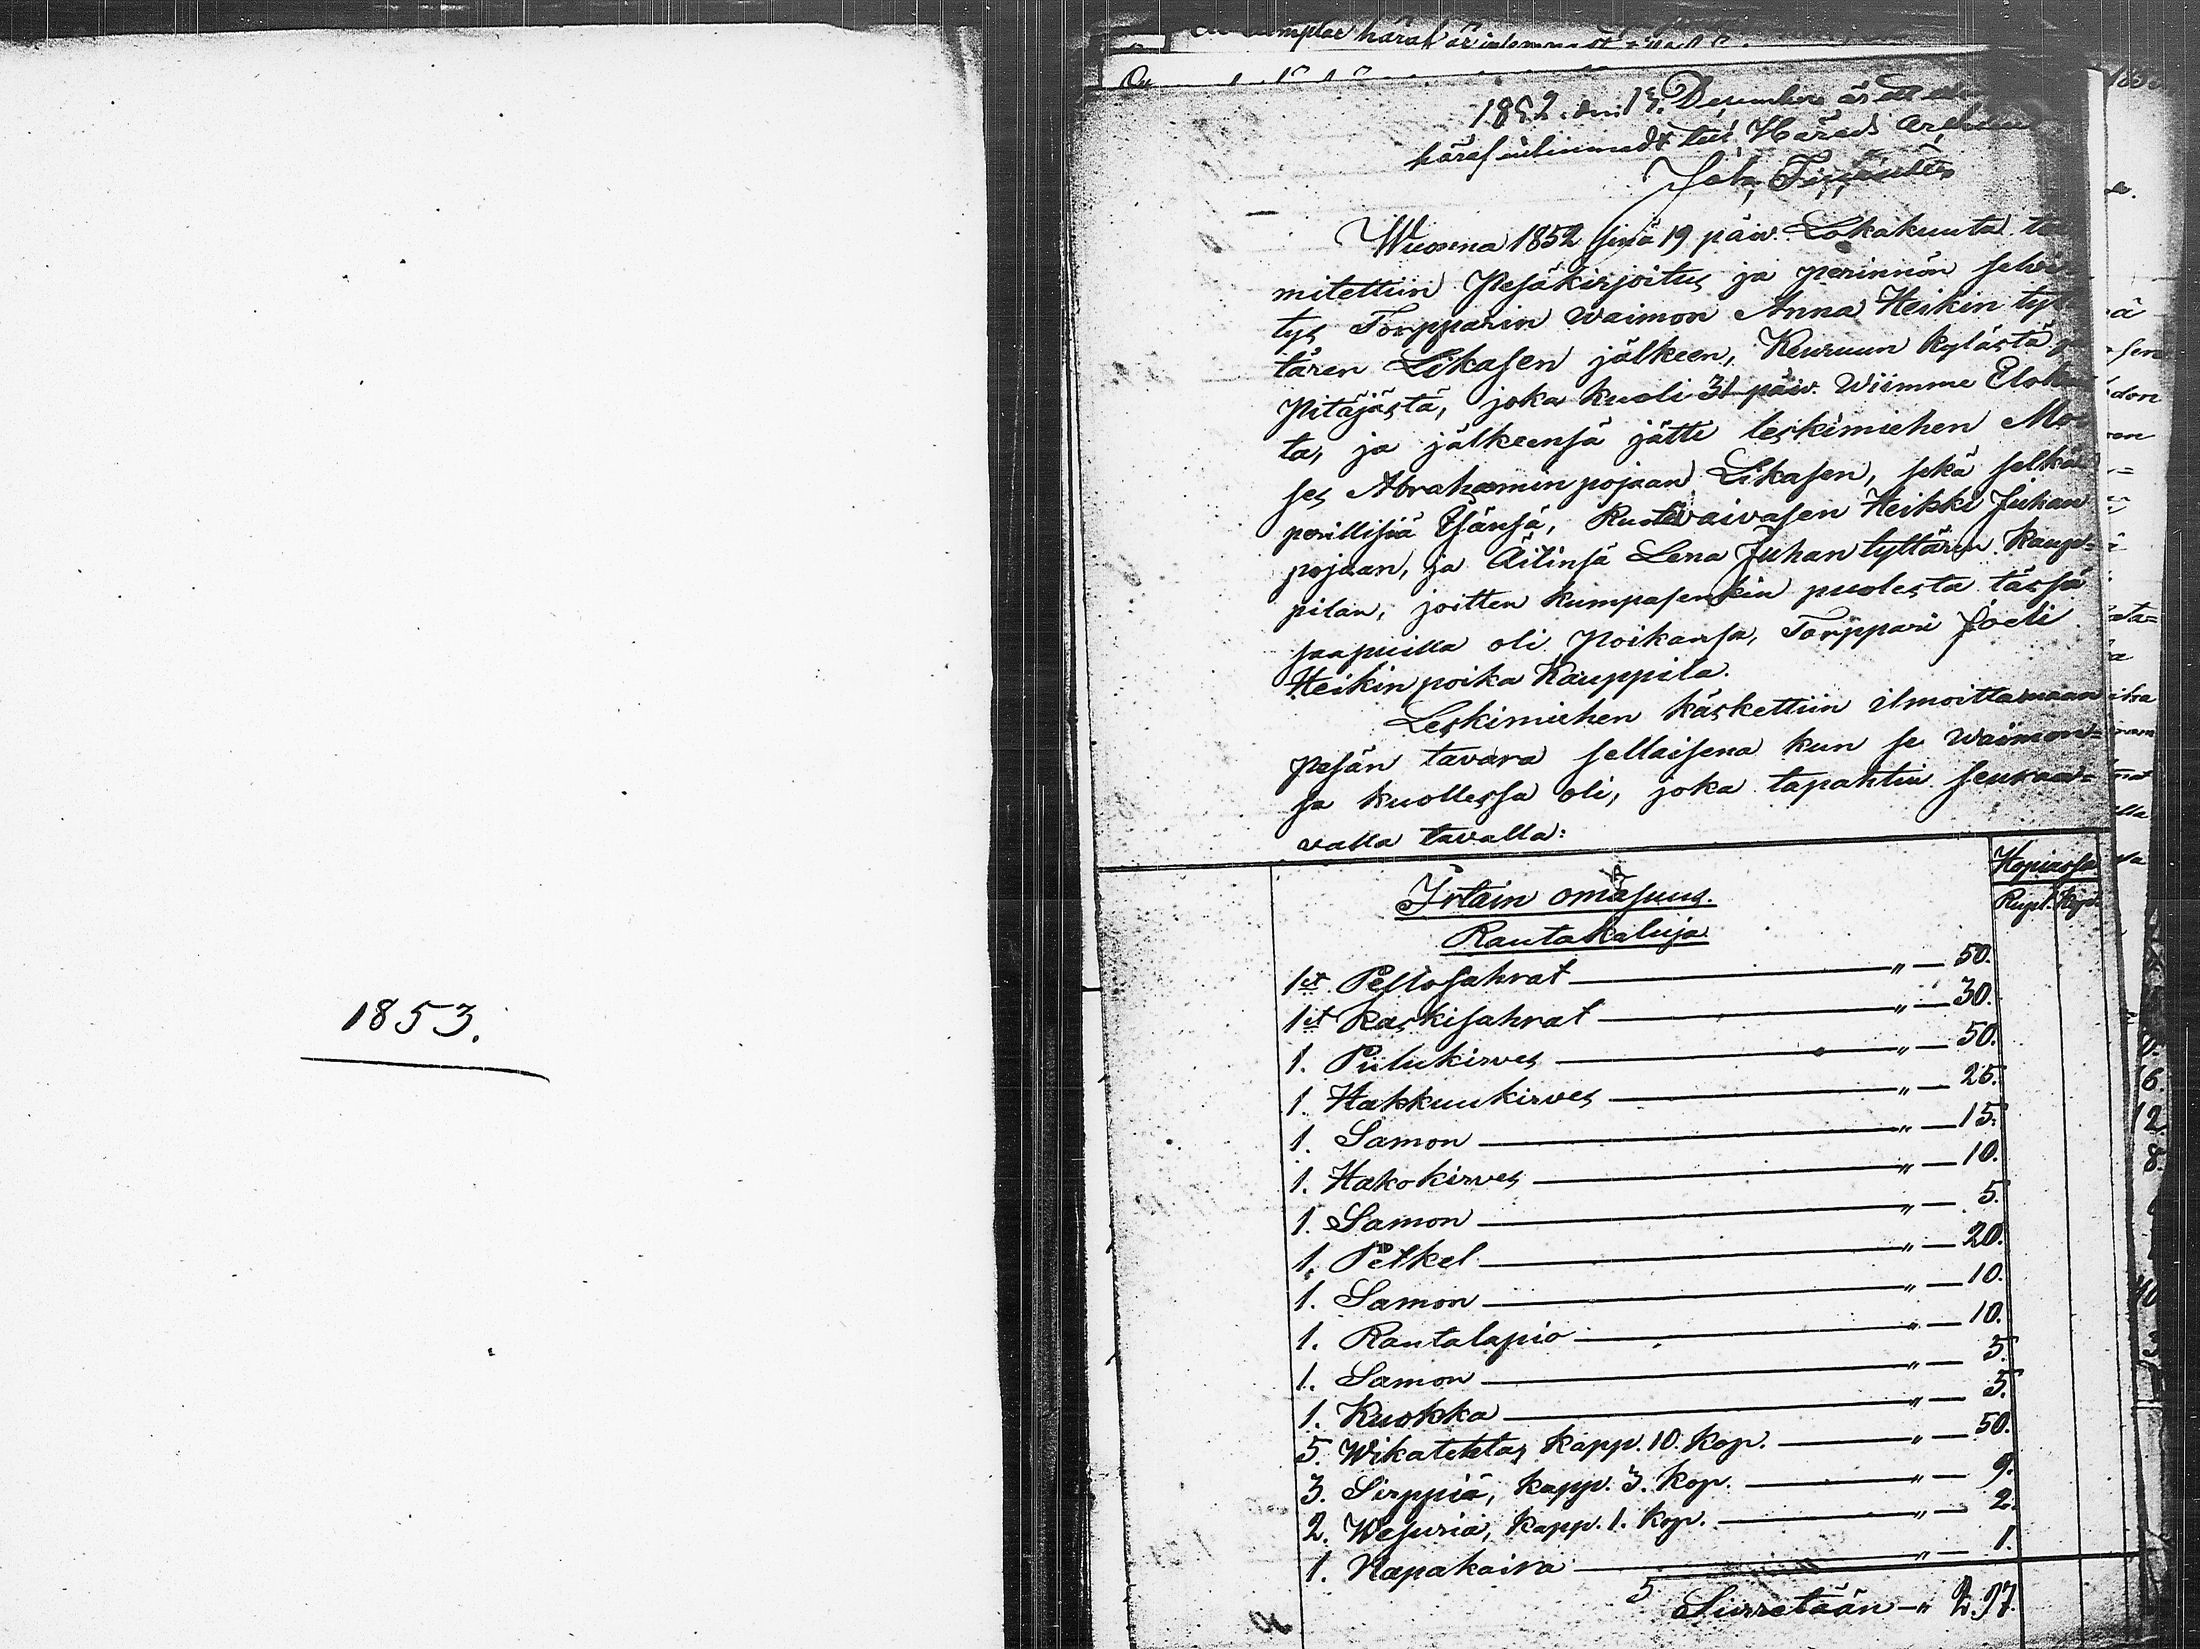 1853.
häraf är
1852. den 13. December är ett
häraf inlemnadt till Härads
Joh,
Wuonna 1852 sinä 19 päiv. Lokakuuta toi
mitettiin Pesäkirjoitus ja perinnön selvi
tys Torpparin waimon Anna Heikin tyt
tären Likasen jälkeen, Keuruun kylästä ja
Pitäjästä, joka kuoli 31 päiv. wiimme Eloku
ta, ja jälkeensä jätti leskimiehen Mo-
ses Abrahamin pojaan Likasen, sekä selkä
perillisiä Isänsä, Ruotivaivasen Heikki Juhan
pojaan, ja Äitinsä Lena Juhan tyttären Kaup-
pilan, joitten kumpasenkin puolesta tässä
saapuilla oli Poikansa, Torppari Joeli
Heikin poika Kauppila.
Leskimiehen käskettiin ilmoittamaan
pesän tavara sellaisena kun se waimon-
sa kuollessa oli, joka tapahtui seuraa-
valla tavalla:
Hopiassa
Irtain omasuus.
Rupl. Kop.
Rautakaluja
1et Peltosahrat — " — 50.
1et Kaskisahrat — " — 30.
1. Piilukirves — " — 50.
1. Hakkuukirves — " — 25.
1. Samon — " — 15.
1. Hakokirves — " — 10.
1. Samon — " — 5.
1. Petkel — " — 20.
1. Samon — " — 10.
1. Rautalapio — " — 10.
1. Samon — " — 5.
1. Kuokka — " — 5.
5. Wikatehtas kapp. 10. Kop. — " — 50.
3. Sirppiä, kapp. 3. Kop. — " — 9.
2. Wesuria, kapp. 1. Kop. — " — 2.
1. Napakaira — " — 1.
Siirretään — " 2.97.